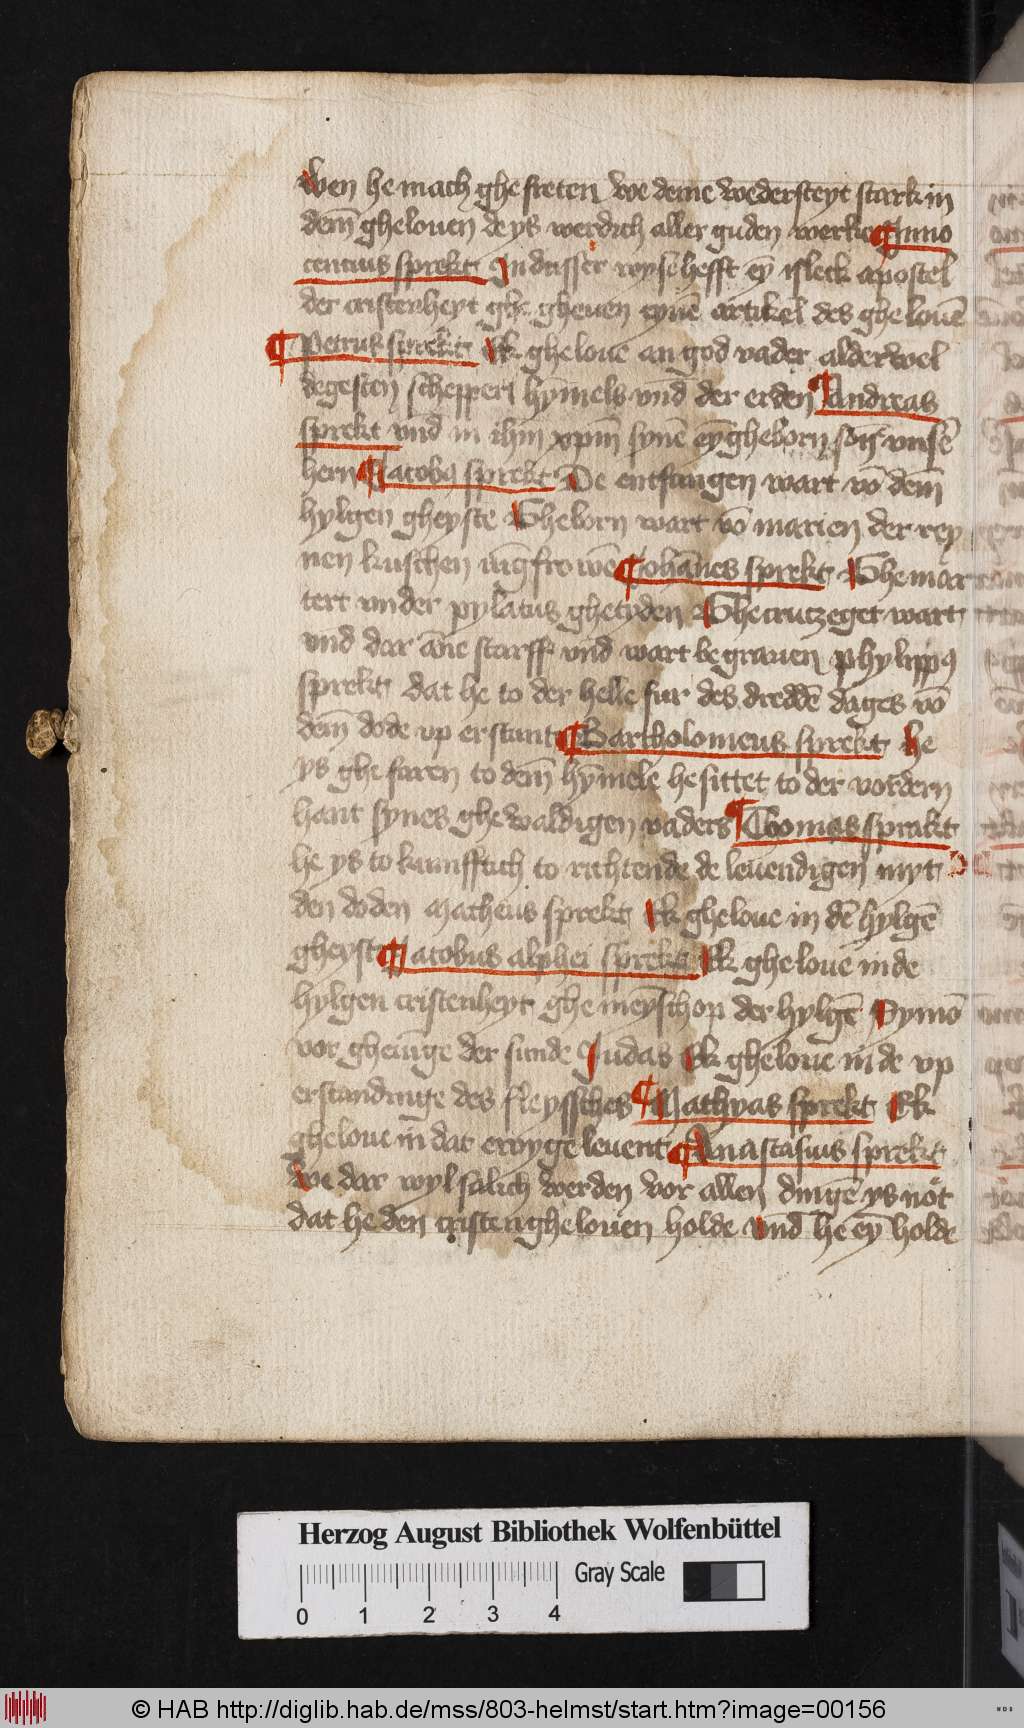 wen he mach ghe freten we deme wedersteyt stark in
dem̄ ghelouen de ys werdich aller guden werke ¶Inno
cencius sprekt In dusser wyse hefft eȳ isleck apostel
der cristenheyt ghe gheuen eynē artikel des ghe louē
¶Petrus sprekt Ik ghe loue an god vader alderwel
degesten schepperꝭ hȳmels vnd̄ der erden ¶Andreas
sprekt vnd̄ in ihm̄ xpm̄ synē eyn̄gheborn son vnsē
hern ¶Jacobꝯ sprekt De entfangen wart vō dem̄
hylgen gheyste Gheborn wart vō marien der rey
nen kuschen iūgfrowē ¶Johānes sprekt Ghe mar
tert vnder pylatus ghetyden Ghecrutzeget wart
vnd̄ dar āne starff vnd̄ wart be grauen phylippꝯ
sprekt dat he to der helle fur des dreddē dages vō
dem̄ dode vp erstant ¶Bartholomeus sprekt he
ys ghe faren to dem̄ hȳmele he sittet to der vordern
hant synes ghe waldigen vaders ¶Thomas sprekt
he ys to kumfftich to richtende de leuendigen myt
den doden Matheus sprekt Ik ghe loue in dē hylgē
gheyst ¶Jacobus alphei sprekt Ik ghe loue in de
hylgen cristenheyt ghe meȳschop der hylgē Symō
vor gheuīge der sunde Judas Ik ghe loue in de vp
erstandinge des fleysches ¶Mathyas sprekt Ik
ghe loue in dat ewyge leuent ¶Anastasius sprekt
we dar wyl salich werden vor allen dingē ys nōt
dat he den cristen ghe louen holde vnd̄ he eȳ holde
Herzog August Bibliothek Wolfenbüttel
Gray Scale
0 1 2 3 4
© HAB http://diglib.hab.de/mss/803-helmst/start.htm?image=00156